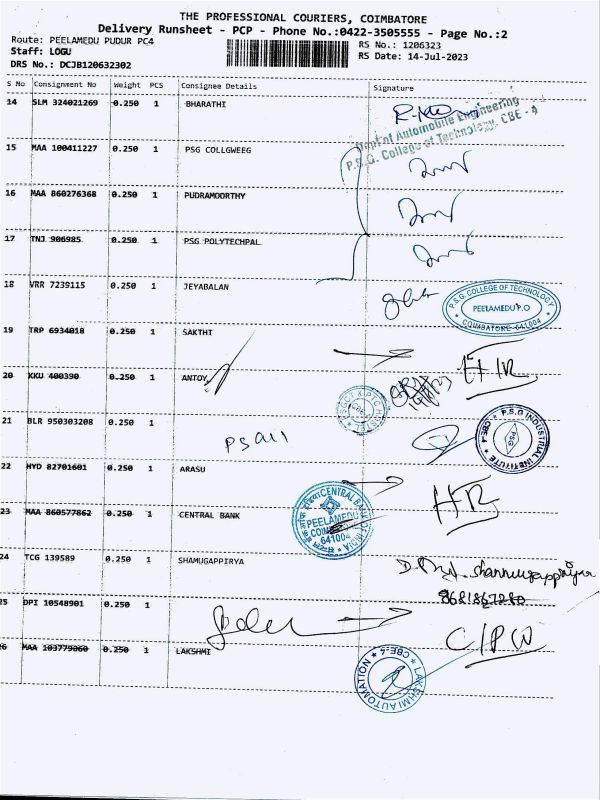 THE PROFESSIONAL COURIERS, COIMBATORE
Delivery Runsheet - PCP - Phone No.:0422-3505555 - Page No.:2
Route: PEELAMEDU PUDUR PC4
RS No.: 1206323
Staff: LOGU
RS Date: 14-Jul-2023
DRS No.: DCJB120632302
S No Consignment No Weight PCS Consignee Details Signature
14 SLM 324021269 0.250 1 BHARATHI
Dept of Automobile Engineering
P.S.G. College of Technology, CBE - 4
15 MAA 100411227 0.250 1 PSG COLLGWEEG
16 MAA 860276368 0.250 1 PUDRAMOORTHY
17 TNJ 906985 0.250 1 PSG POLYTECHPAL
18 VRR 7239115 0.250 1 JEYABALAN
P.S.G. COLLEGE OF TECHNOLOGY
PEELAMEDU P.O
COIMBATORE-641004
19 TRP 6934018 0.250 1 SAKTHI
20 KKU 400390 0.250 1 ANTOY
21 BLR 950303208 0.250 1
P.S.G INDUSTRIAL INSTITUTE
PSG
CBE-4
22 HYD 82701601 0.250 1 ARASU
HR
23 MAA 860577862 0.250 1 CENTRAL BANK
CENTRAL BANK OF INDIA
PEELAMEDU
641004
24 TCG 139589 0.250 1 SHAMUGAPPIRYA
25 DPI 10548901 0.250 1
26 MAA 103779060 0.250 1 LAKSHMI
LAKSHMI AUTOMATION
CBE-4